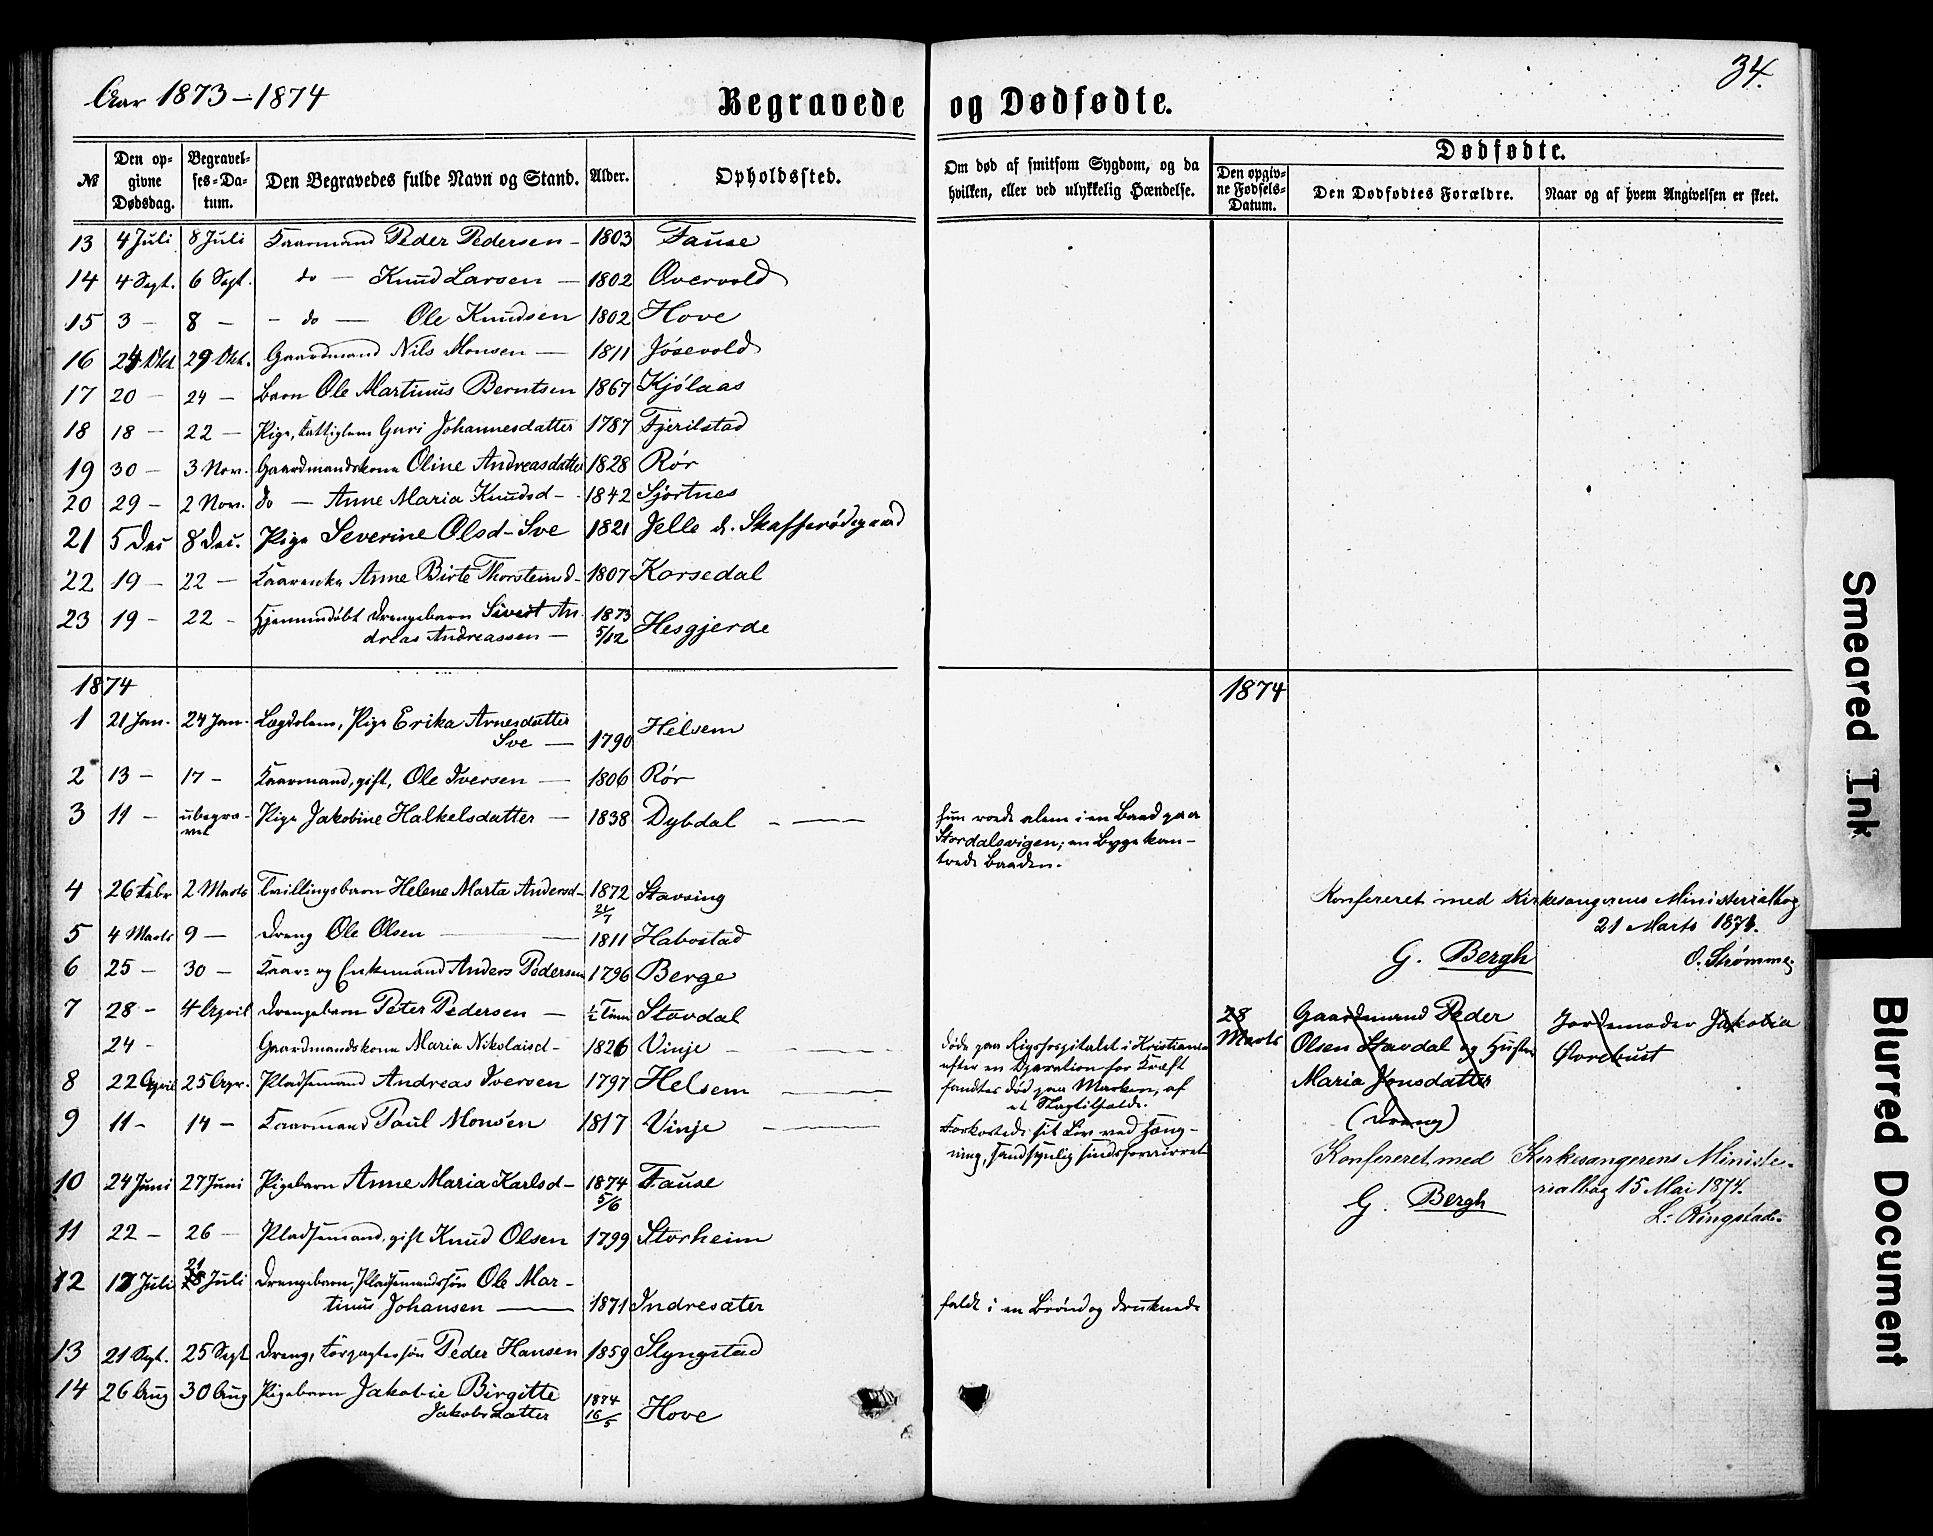 Aar 1873-1874
Begravede og Dødfødte.
34.
№ Den opgivne Dødsdag. Begravelses-Datum. Den Begravedes fulde Navn og Stand. Alder. Opholdssted. Om død af smitsom Sygdom, og da hvilken, eller ved ulykkelig Hændelse. Dødfødte. Den opgivne Fødsels-Datum. Den Dødfødtes Forældre. Naar og af hvem Angivelsen er skeet.
13 4 Juli 8 Juli Kaarmand Peder Pedersen - 1803 Fause
14 4 Sept. 6 Sept. do - Knud Larsen - 1802 Overvold
15 3 - 8 - - do - Ole Knudsen 1802 Hove
16 24 Okt 29 Okt. Gaardmand Nils Monsen - 1811 Jösevold
17 20 - 24 - barn Ole Martinus Berntsen 1867 Kjölaas
18 18 - 22 - Pige, fattiglem Guri Johannesdatter 1787 Fjerilstad
19 30 - 3 Nov. Gaardmandskone Oline Andreasdatter 1828 Rör
20 29 - 2 Nov. do - Anne Maria Knudsd - 1842 Sjortnes
21 5 Dec 8 Dec. Pige Severine Olsd - Sve 1821 Jelle d.
22 19 - 22 - Kaarenke Anne Birte Thorsteinsd - 1807 Korsedal
23 19 - 22 - Hjemmedöbt Drengebarn Sivert An-
dreas Andreassen - 1873 5/12 Hesgjerde
1874
1874
1 21 Jan. 24 Jan. Lægdslem, Pige Erika Arnesdatter
Sve - 1790 Helsem
2 13 - 17 - Kaarmand, gift, Ole Iversen - 1806 Rör
3 11 - ubegra-
vet Pige Jakobine Halkelsdatter - 1838 Dybdal - hun roede alene i en Baad paa
Stordalsvigen; en Byge kan-
trede Baaden.
4 26 Febr 2 Marts Tvillingbarn Helene Marta Andersd - 1872 21/7 Stavsing
Konfereret med Kirkesangerens Ministerialbog
21 Marts 1874.
5 4 Marts 9 - Dreng Ole Olsen - 1811 Habostad
G. Bergh O. Strømme.
6 25 - 30 - Kaar- og Enkemand Anders Pedersen 1796 Berge
7 28 - 4 April Drengebarn Peter Pedersen - 1/2 Time Stavdal
28 Marts Gaardmand Peder
Olsen Stavdal og Hustru
Maria Jonsdatter
(Dreng)
Jordemoder Jakobia
Øvrebust
24 - Gaardmandskone Maria Nikolaisd - 1826 Vinje - døde paa Rigshospitalet i Kristiania
efter en Operation for Kræft
8 22 April 25 Apr. Pladsemand Andreas Iversen 1797 Helsem - fandtes død paa Marken, af
et Slagtilfælde.
9 11 - 14 - Kaarmand Paul Monsen 1817 Vinje - Forkortede sit Liv ved Hæng-
ning, sandsynlig sindsforvirret
Konfereret med Kirkesangerens Ministe-
rialbog 15 Mai 1874.
G. Bergh L. Ringstad.
10 24 Juni 27 Juni Pigebarn Anne Maria Karlsd - 1874 5/6 Fause
11 22 - 26 - Pladsemand, gift Knud Olsen 1799 Storheim
12 17 Juli 21 Juli Drengebarn, Pladsemandssön Ole Mar-
tinus Johansen - 1871 Indresæter faldt i en Brönd og druknede
13 21 Sept. 25 Sept Dreng, Forpagtersön Peder Hansen 1859 Slyngstad
14 26 Aug 30 Aug Pigebarn Jakobie Birgitte
Jakobsdatter 1874 16/5 Hove
Smeared Ink
Blurred Document